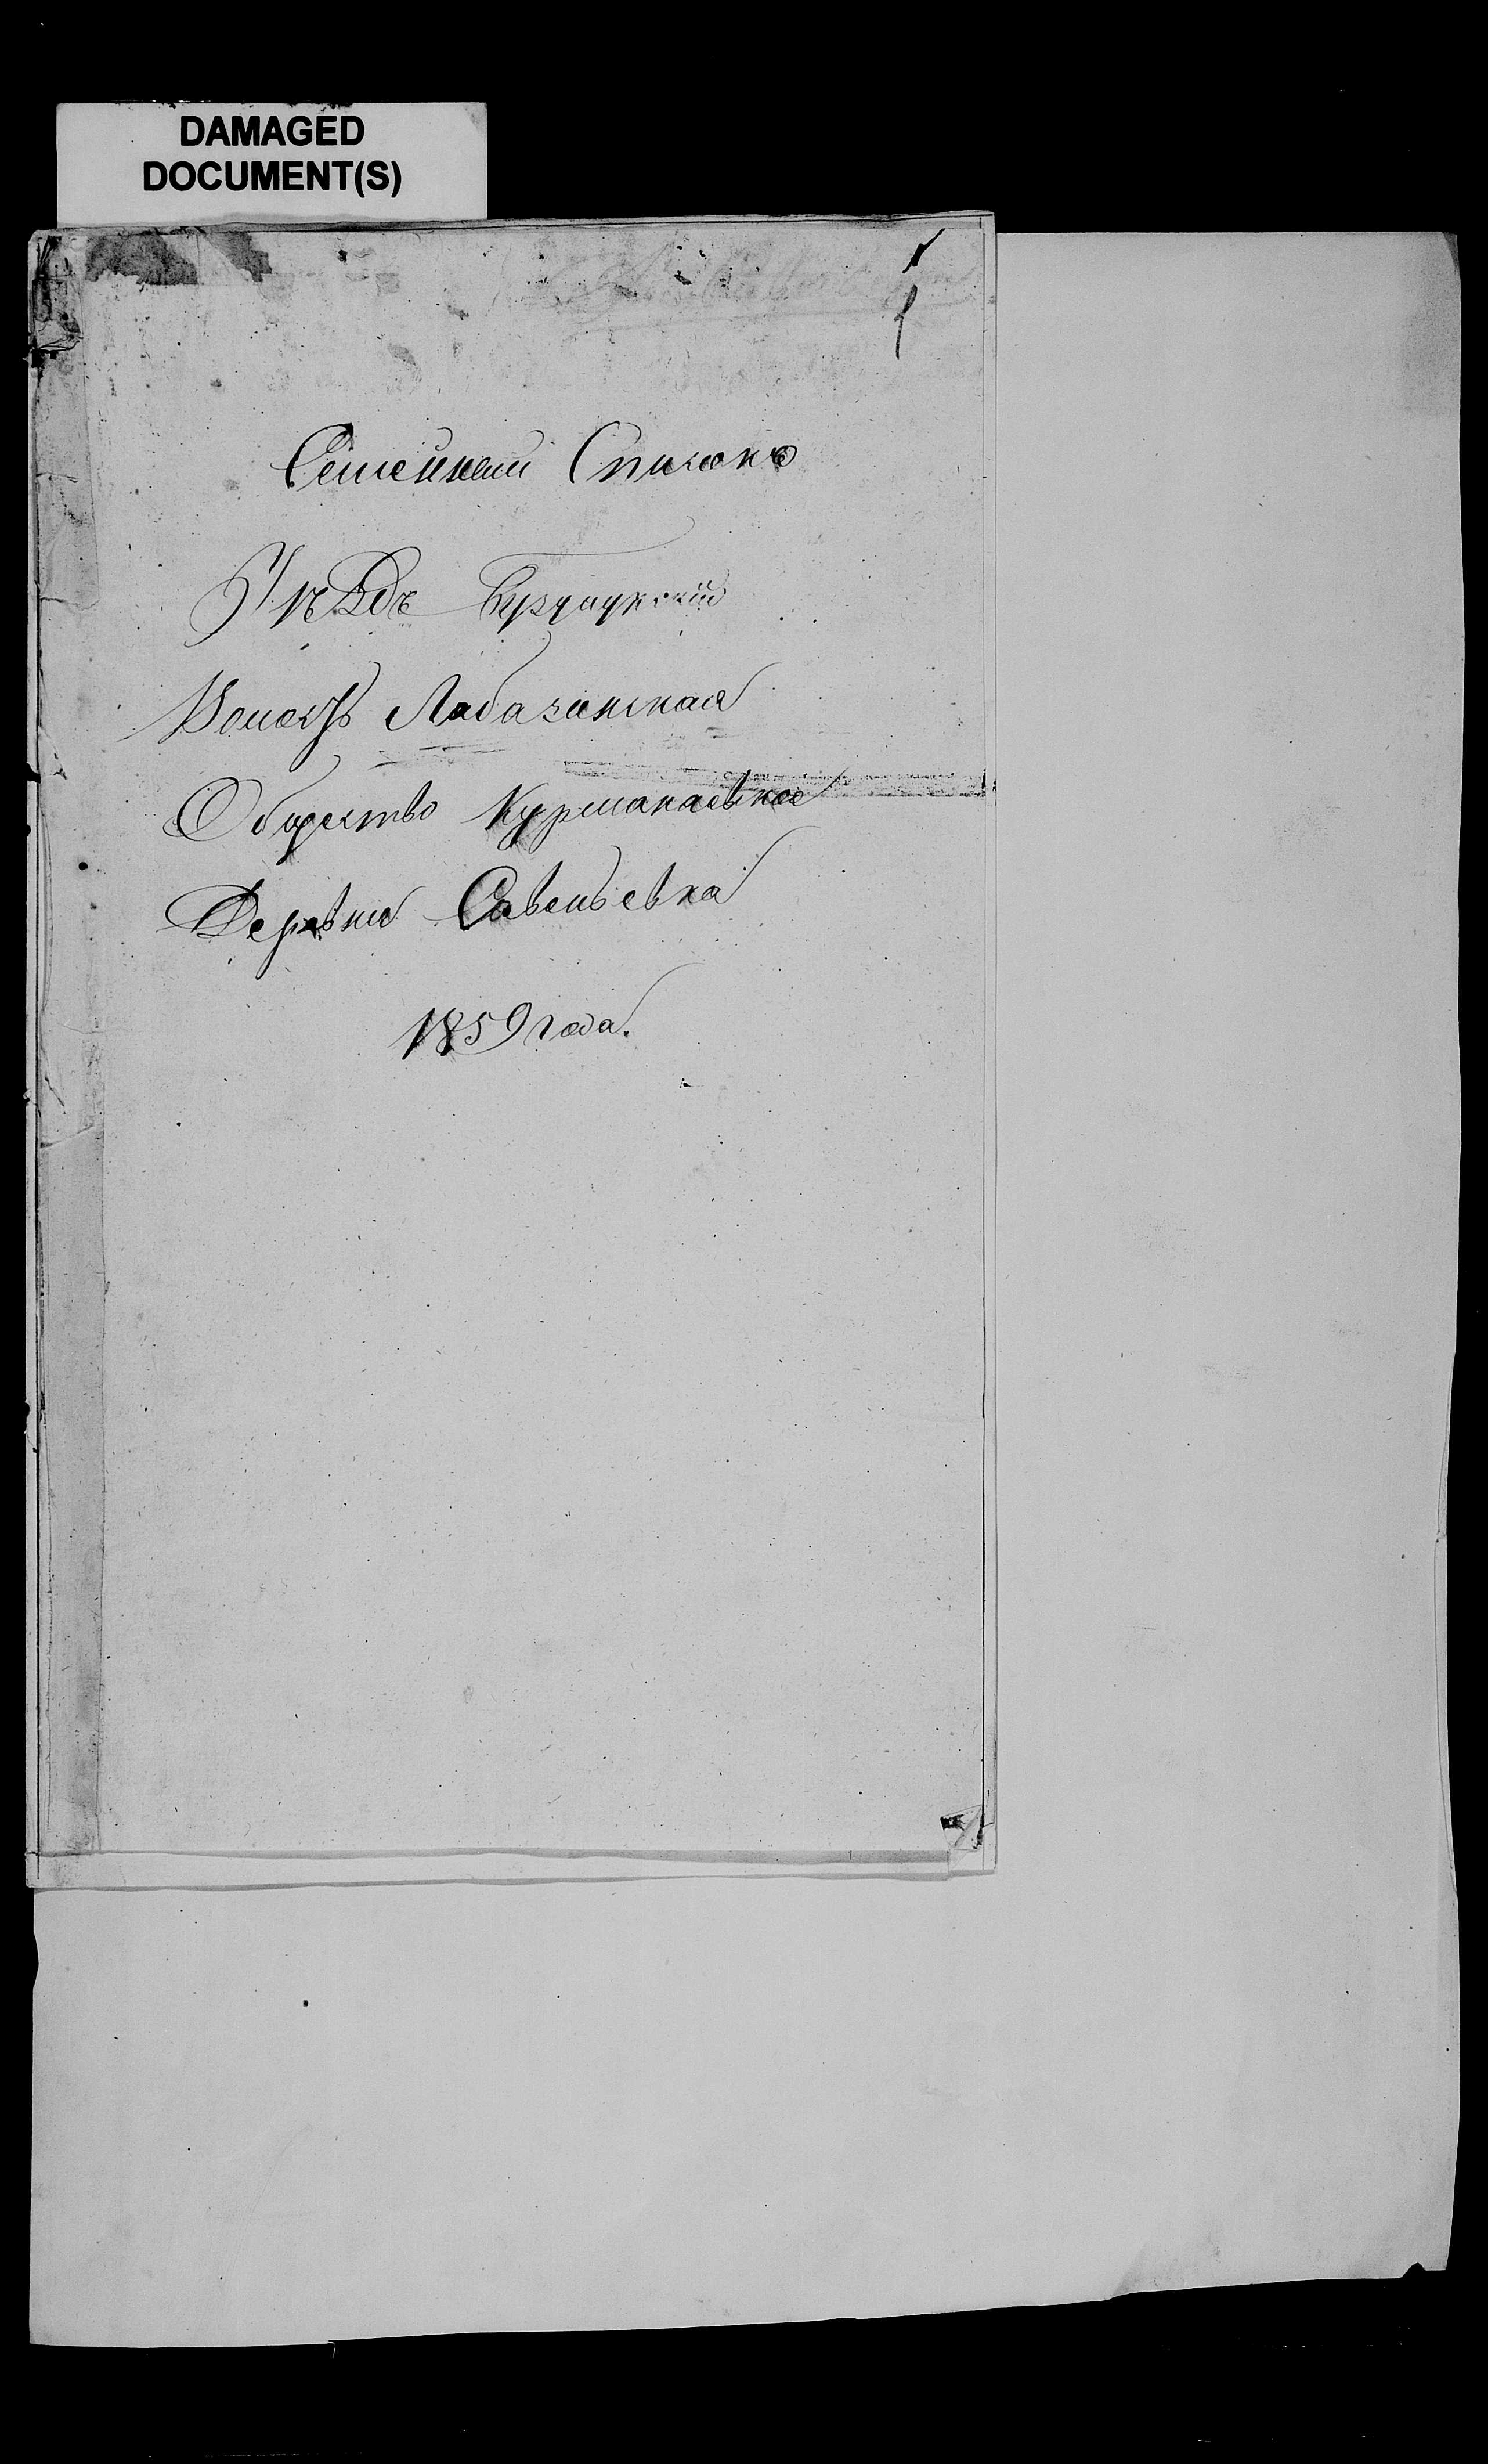 DAMAGED
DOCUMENT(S)
Семейный Списокъ
Уѣздъ Бузулукскій
Волость Лабазинская
Общество Курманаевское
Деревни Савельевка
1859 года.